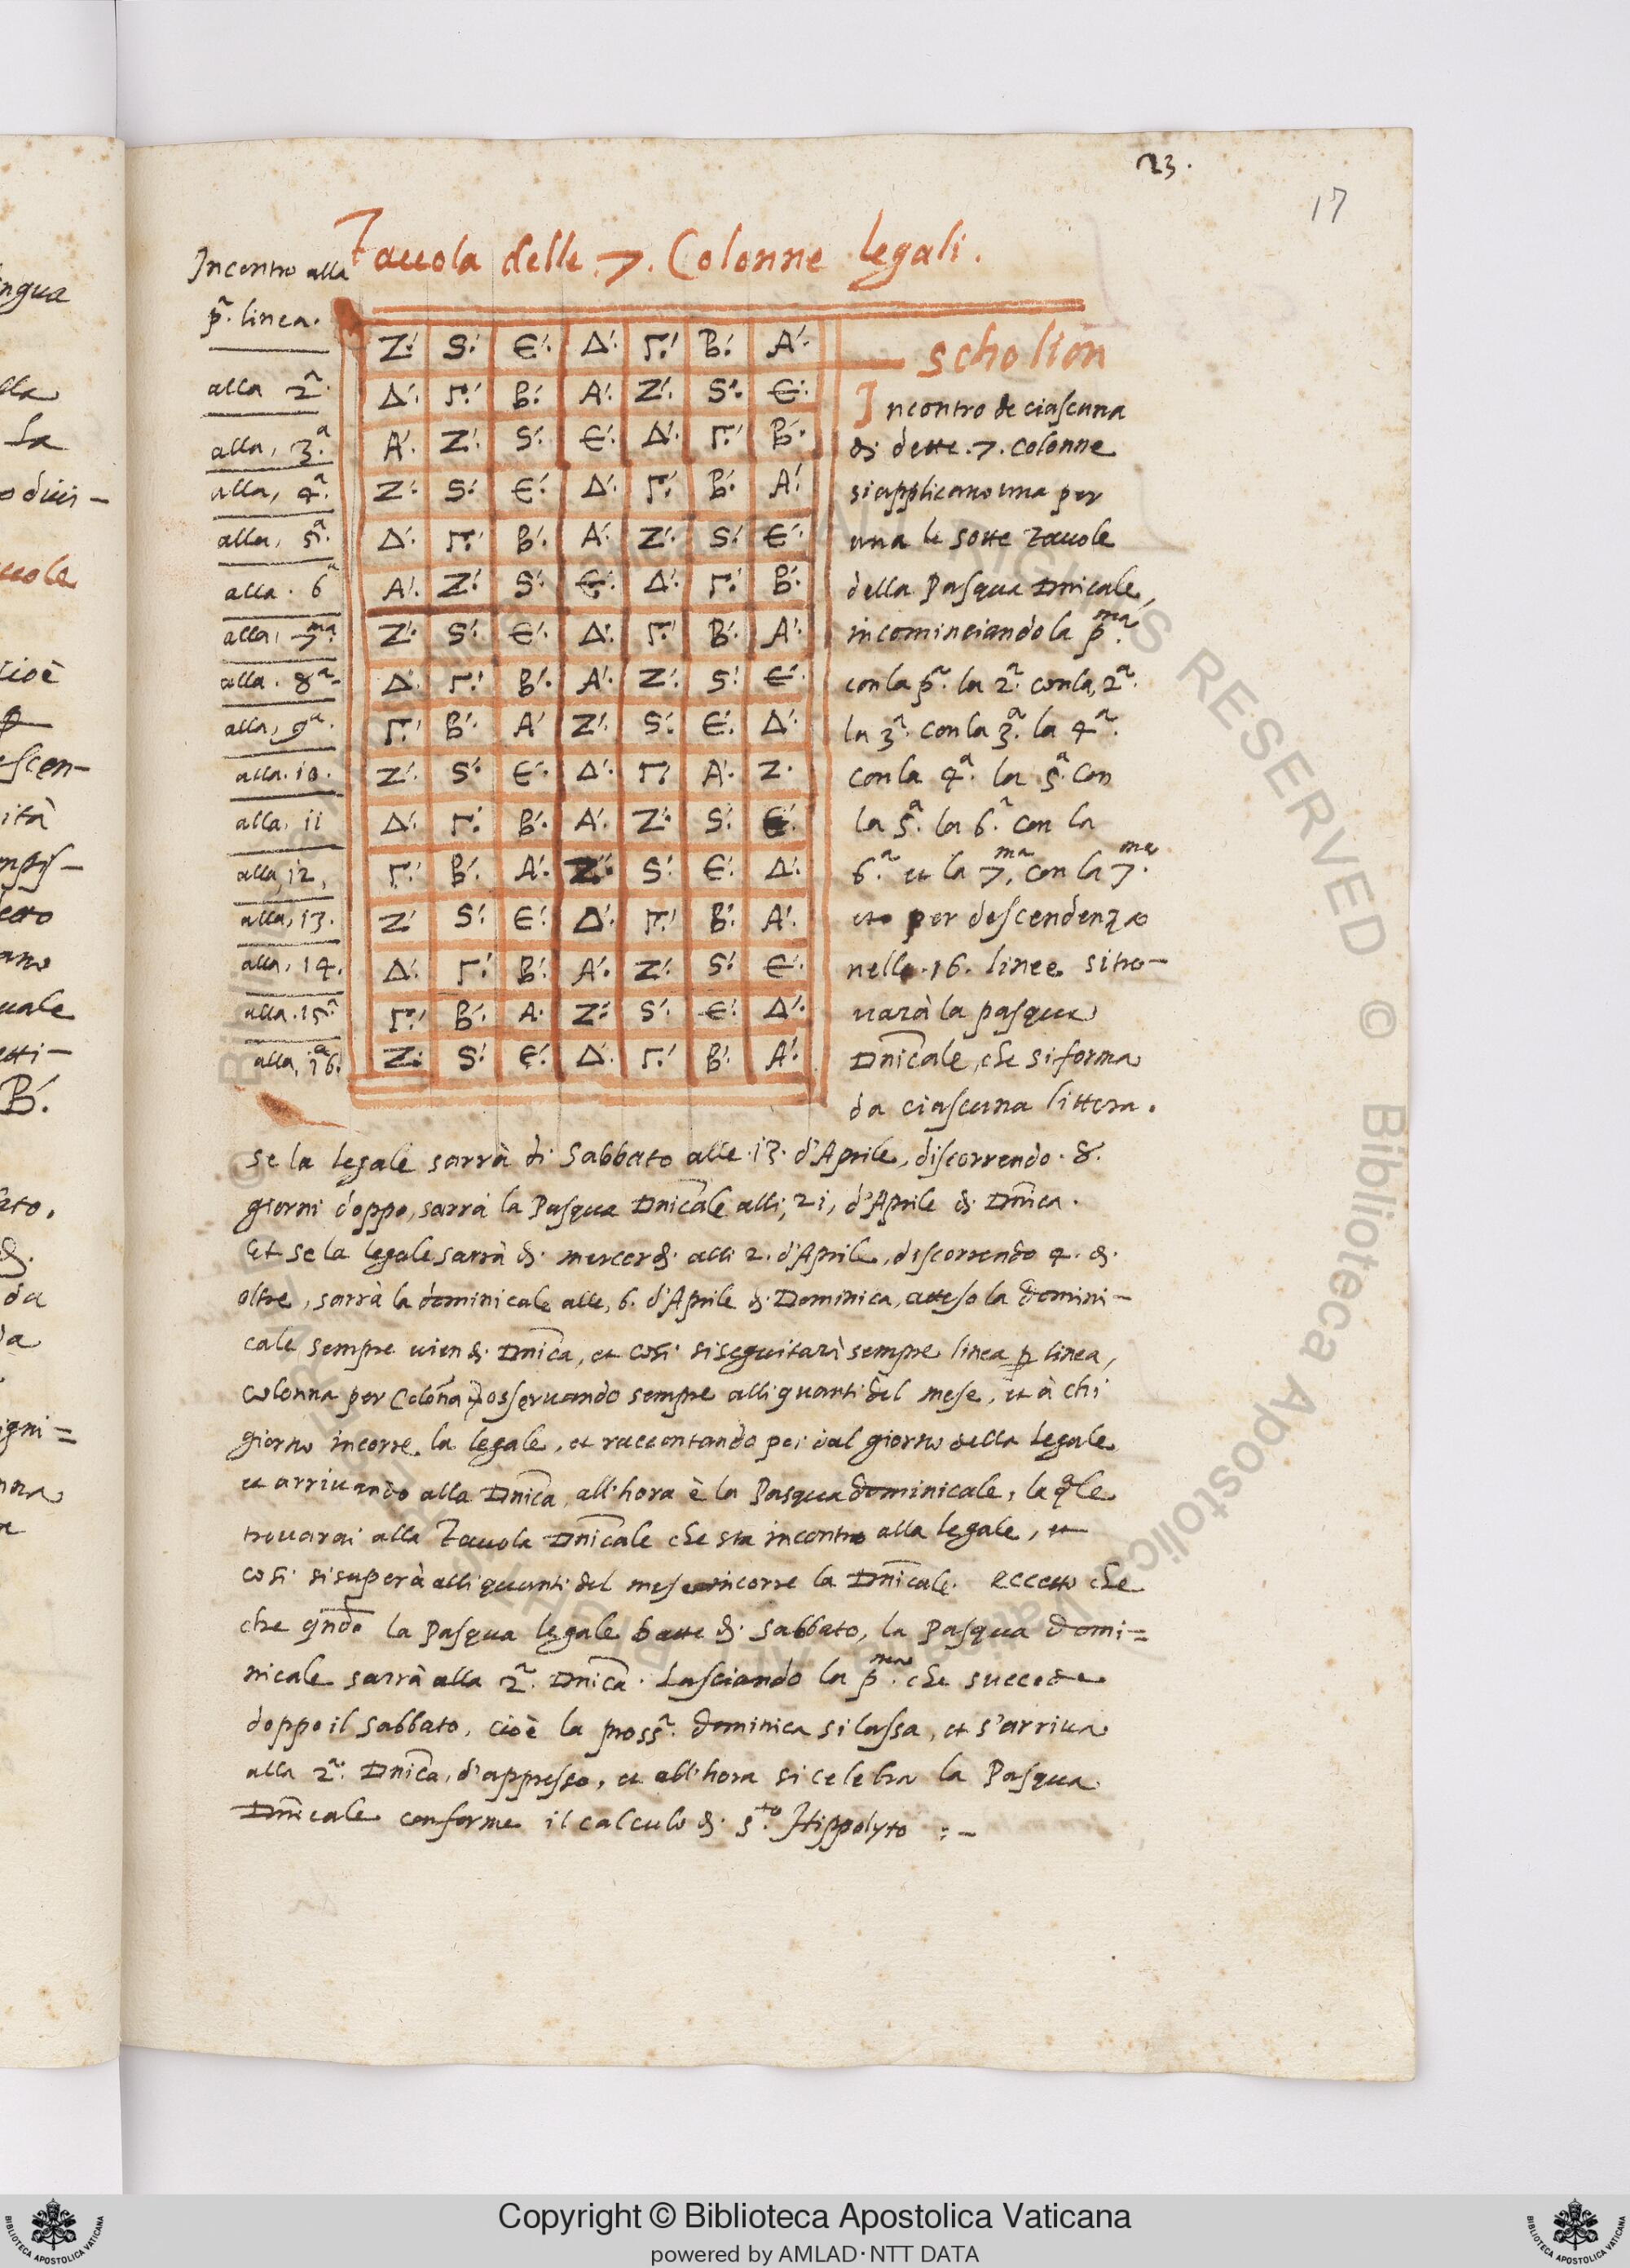 23.
17
Tauola delle .7. Colonne legali.
Incontro alla
pª. linea.
Z. S. Є. Δ. Γ. B. A.
alla 2ª. Δ. Γ. B. A. Z. S. Є.
alla, 3ª. A. Z. S. Є. Δ. Γ. B.
alla, 4ª. Z. S. Є. Δ. Γ. B. A
alla, 5ª. Δ. Γ. B. A. Z. S. Є.
alla. 6ª A. Z. S. Є. Δ. Γ. B.
alla, 7ma. Z. S. Є. Δ. Γ. B. A.
alla. 8ª. Δ. Γ. B. A. Z. S. Є.
alla, 9ª. Γ. B. A Z. S. Є. Δ.
alla. 10. Z. S. Є. Δ. Γ A. Z.
alla, 11 Δ. Γ. B. A. Z. S. Є.
alla, 12, Γ. B. A. Z. S. Є. Δ.
alla, 13. Z S. Є. Δ. Γ. B. A.
alla, 14. Δ. Γ. B. A. Z. S. Є.
alla. 15ª Γ. B. A. Z. S. Є. Δ.
alla, 16ª. Z. S. Є. Δ. Γ. B. A.
scholion
Incontro de ciascuna
di dette .7. colonne
si applicano una per
una le sotte Tauole
della Pasqua Dnicale,
incominciando la pma.
con la pª. la 2ª. con la, 2ª.
la 3ª. con la 3ª. la 4ª.
con la 4ª. la 5ª. con
la 5ª. la 6ª. con la
6ª et la 7ma, con la 7ma.
et per descendenza
nelle .16. linee si tro-
uarà la pasqua
Dnicale, che si forma
da ciascuna littera.
se la legale sarrà di Sabbato alle .13. d'Aprile, discorrendo .8.
giorni doppo, sarrà la Pasqua Dnicale alli, 21, d'Aprile di Dnica.
Et se la legale sarrà di mercordi alli 2. d'Aprile, discorrendo 4. di
oltre, sarrà la dominicale alle, 6. d'Aprile di Dominica, atteso la domini-
cale sempre uien di Dnica, et cosi si seguitarà sempre linea p linea,
colonna per Colona, osseruando sempre alli quanti del mese, et à chi
giorno incorre la legale, et raccontando poi dal giorno della legale
et arriuando alla Dnica, all'hora è la Pasqua dominicale, la qle
trouarai alla Tauola Dnicale che sta incontro alla legale, et
cosi si saperà alli quanti del mese incorre la Dnicale. eccetto che
che qndo la Pasqua legale batte di Sabbato, la Pasqua domi=
nicale sarrà alla 2ª. Dnica. Lasciando la pma. che succede
doppo il sabbato, cioè la prossª. dominica si lassa, et s'arriua
alla 2ª. Dnica, d'appresso, et all'hora si celebra la Pasqua
Dnicale conforme il calculo di sto. Hippolyto :-
ngua
lla
La
cioè
escen-
ità
uale
B.
da
igni=
Copyright © Biblioteca Apostolica Vaticana
powered by AMLAD·NTT DATA